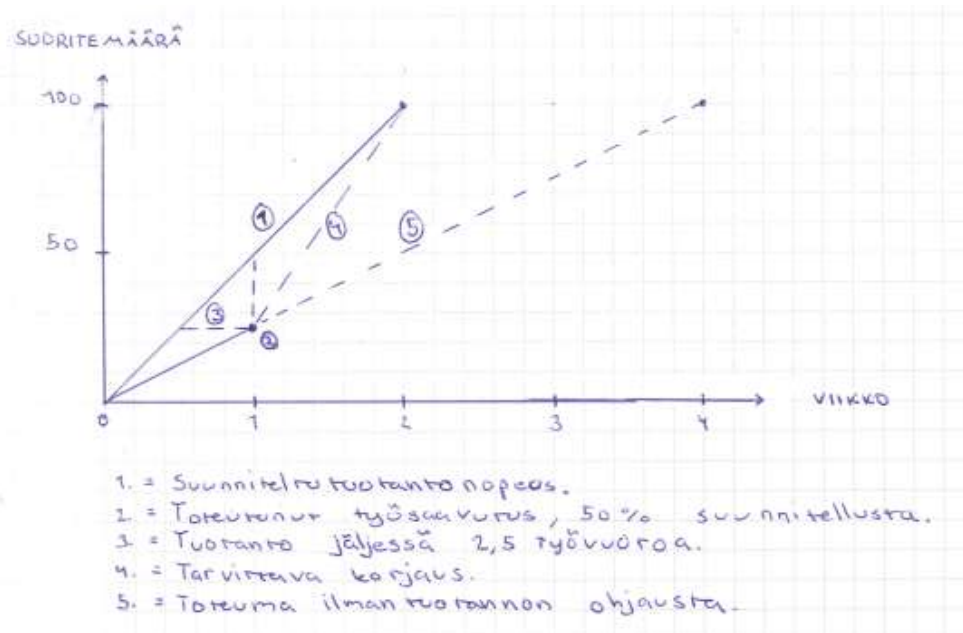 SUORITEMÄÄRÄ
100
50
1
4
5
3
2
VIIKKO
0 1 2 3 4
1. = Suunniteltu tuotantonopeus.
2. = Toteutunut työsaavutus, 50% suunnitellusta.
3. = Tuotanto jäljessä 2,5 työvuoroa.
4. = Tarvittava korjaus.
5. = Toteuma ilman tuotannon ohjausta.